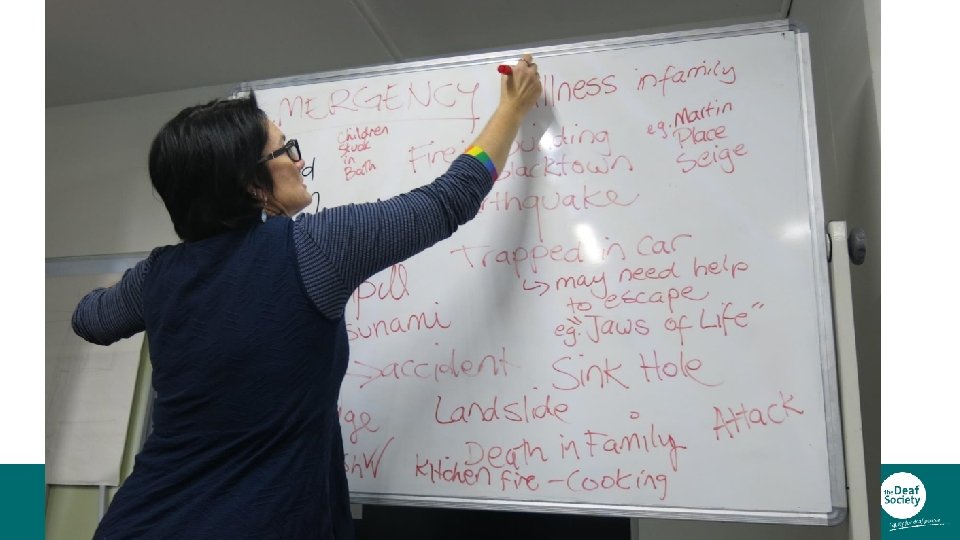 MERGENCY
illness in family
Children
Stuck
in
Bath
Fire in building
eg. Martin
Place
Seige
blacktown
rthquake
Trapped in Car
↳ may need help
to escape
eg. "Jaws of Life"
pill
sunami
→accident
Sink Hole
ge
Landslide
Attack
Death in Family
shw
Kitchen Fire - Cooking
the Deaf
Society